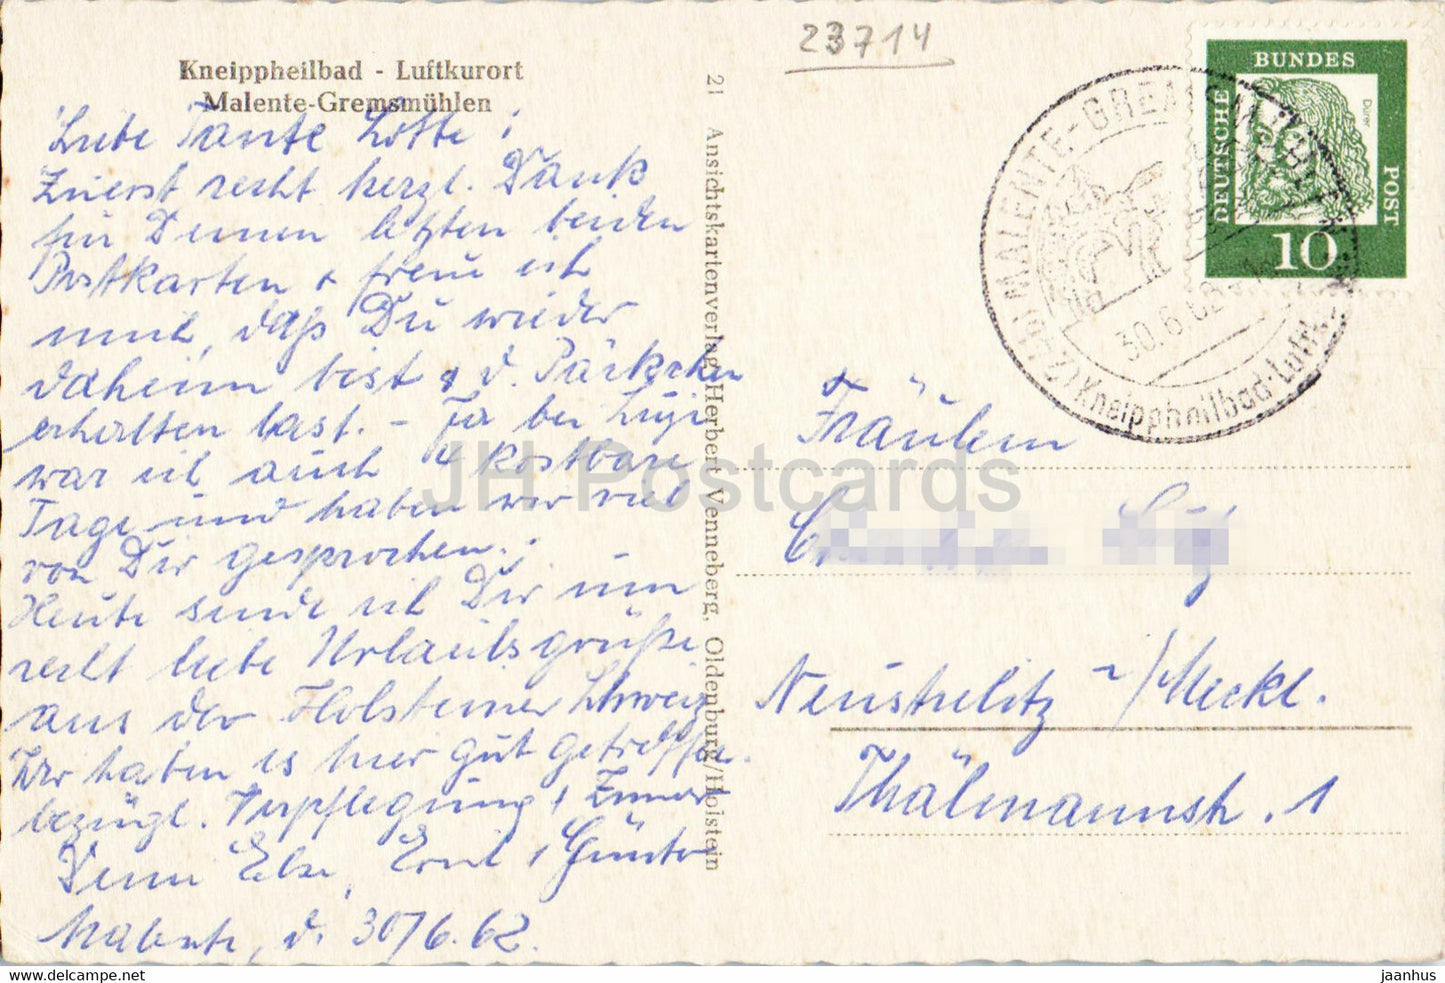 23714
Kneippheilbad - Luftkurort
Malente-Gremsmühlen
Liebe Tante Lotte!
Zuerst recht herzl. Dank
für Deinen letzten beiden
Postkarten + freue ich
mich, daß Du wieder
daheim bist & d. Päckchen
erhalten hast. - Ja bei
war ich auch 4 kostbare
Tage und haben wir viel
von Dir gesprochen.
Heute sende ich Dir nun
recht liebe Urlaubsgrüße
aus der Holsteiner Schweiz
Wir haben es hier gut getroffen
bezügl. Verpflegung + Zimmer
Deine Else, Emil + Günter
Malente, d. 30/6.62.
21 Ansichtskartenverlag Herbert Venneberg, Oldenburg/Holstein
BUNDES
DEUTSCHE
POST
Dürer
10
MALENTE-GREMSMÜHLEN
30.6.62
Kneippheilbad-Luftk.
Fräulein
Neustrelitz i/Meckl.
Thälmannstr. 1
JH Postcards
jaanhus